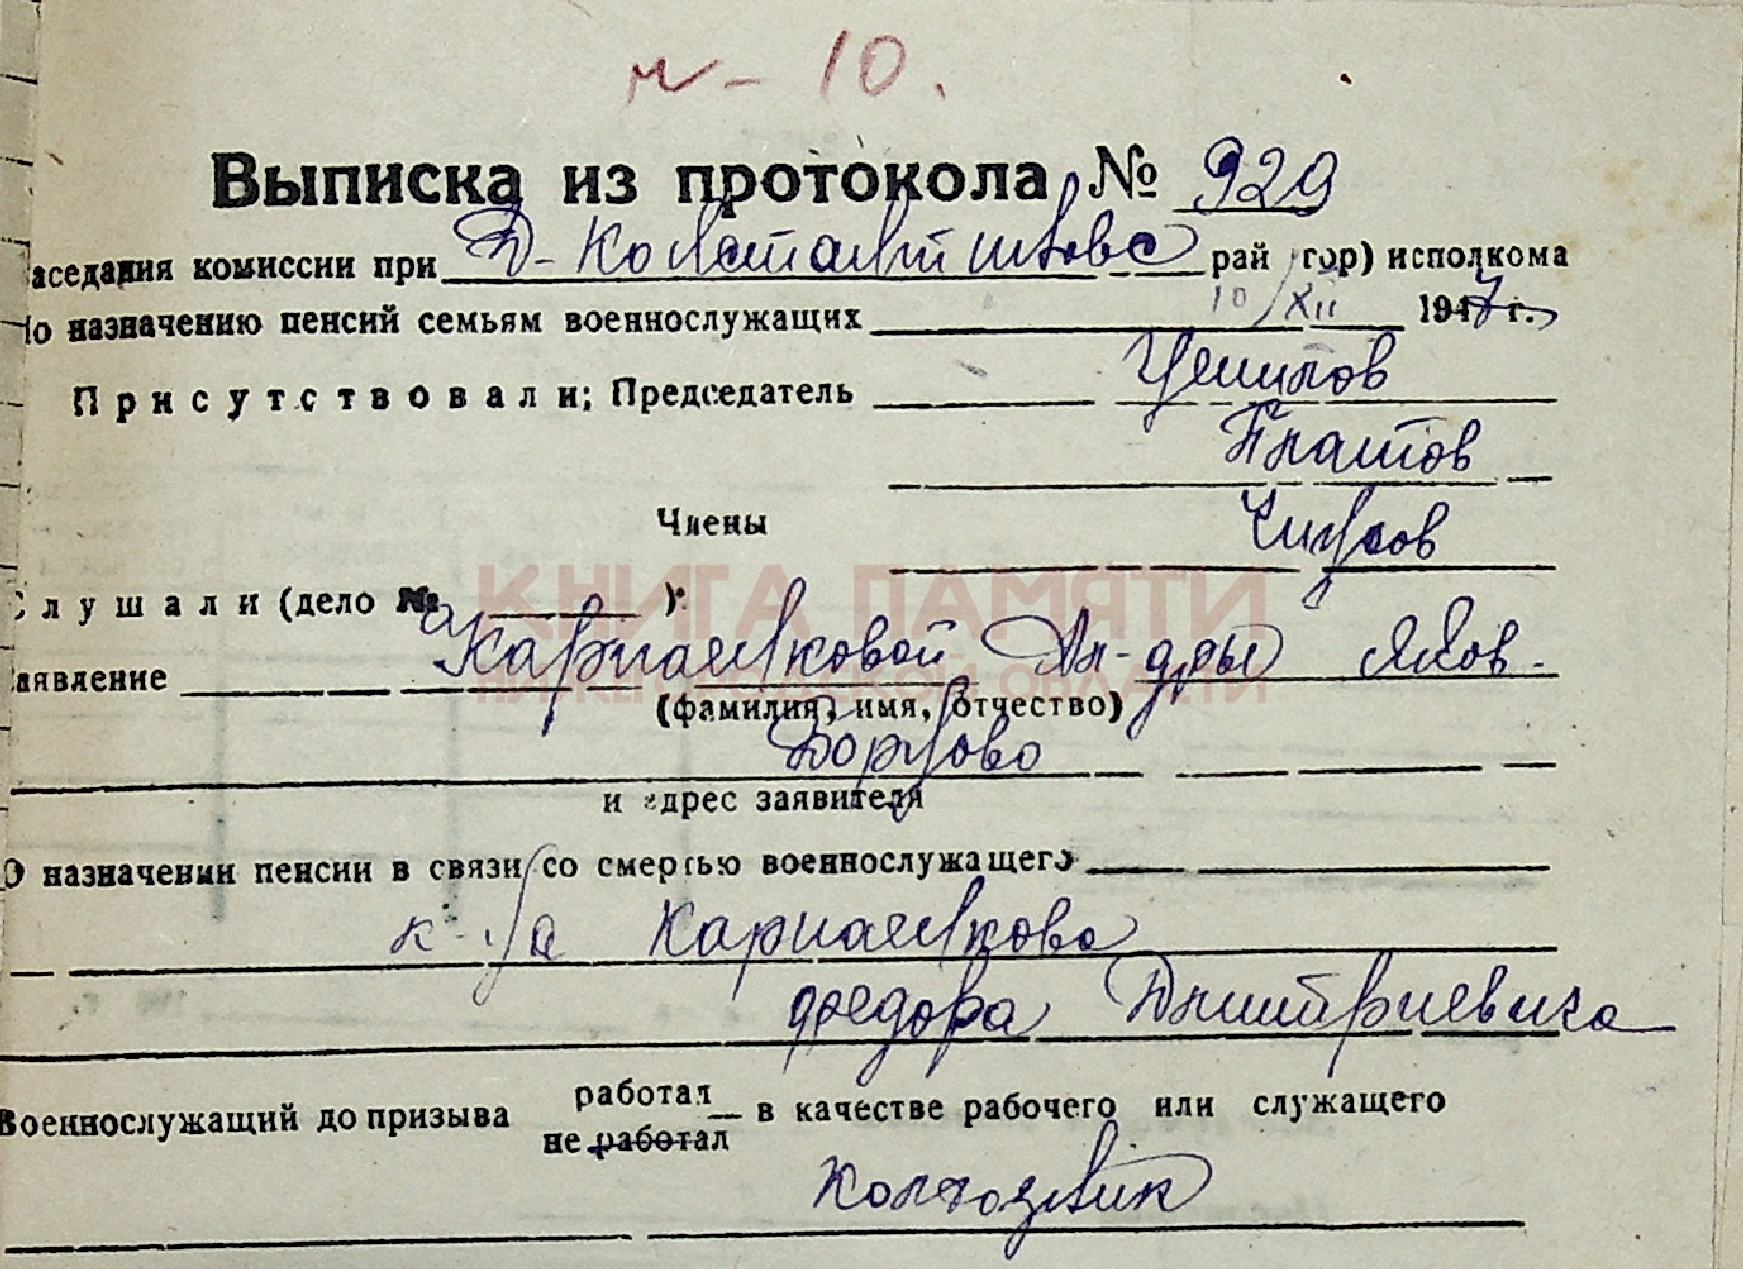 м - 10.
Выписка из протокола № 929
заседания комиссии при Д-Константиновс рай гор) исполкома
по назначению пенсий семьям военнослужащих 10/XII 1947 г.
Присутствовали; Председатель
Платов
Члены Чирков
Слушали (дело № )
КНИГА ПАМЯТИ
НИЖЕГОРОДСКОЙ ОБЛАСТИ
заявление Карпачевой Ал-дры Яков-
(фамилия, имя, отчество)
Борцово
и адрес заявителя
О назначении пенсии в связи со смертью военнослужащего
к-ца
Федора Дмитриевича
Военнослужащий до призыва работал в качестве рабочего или служащего
не работал
колхозник